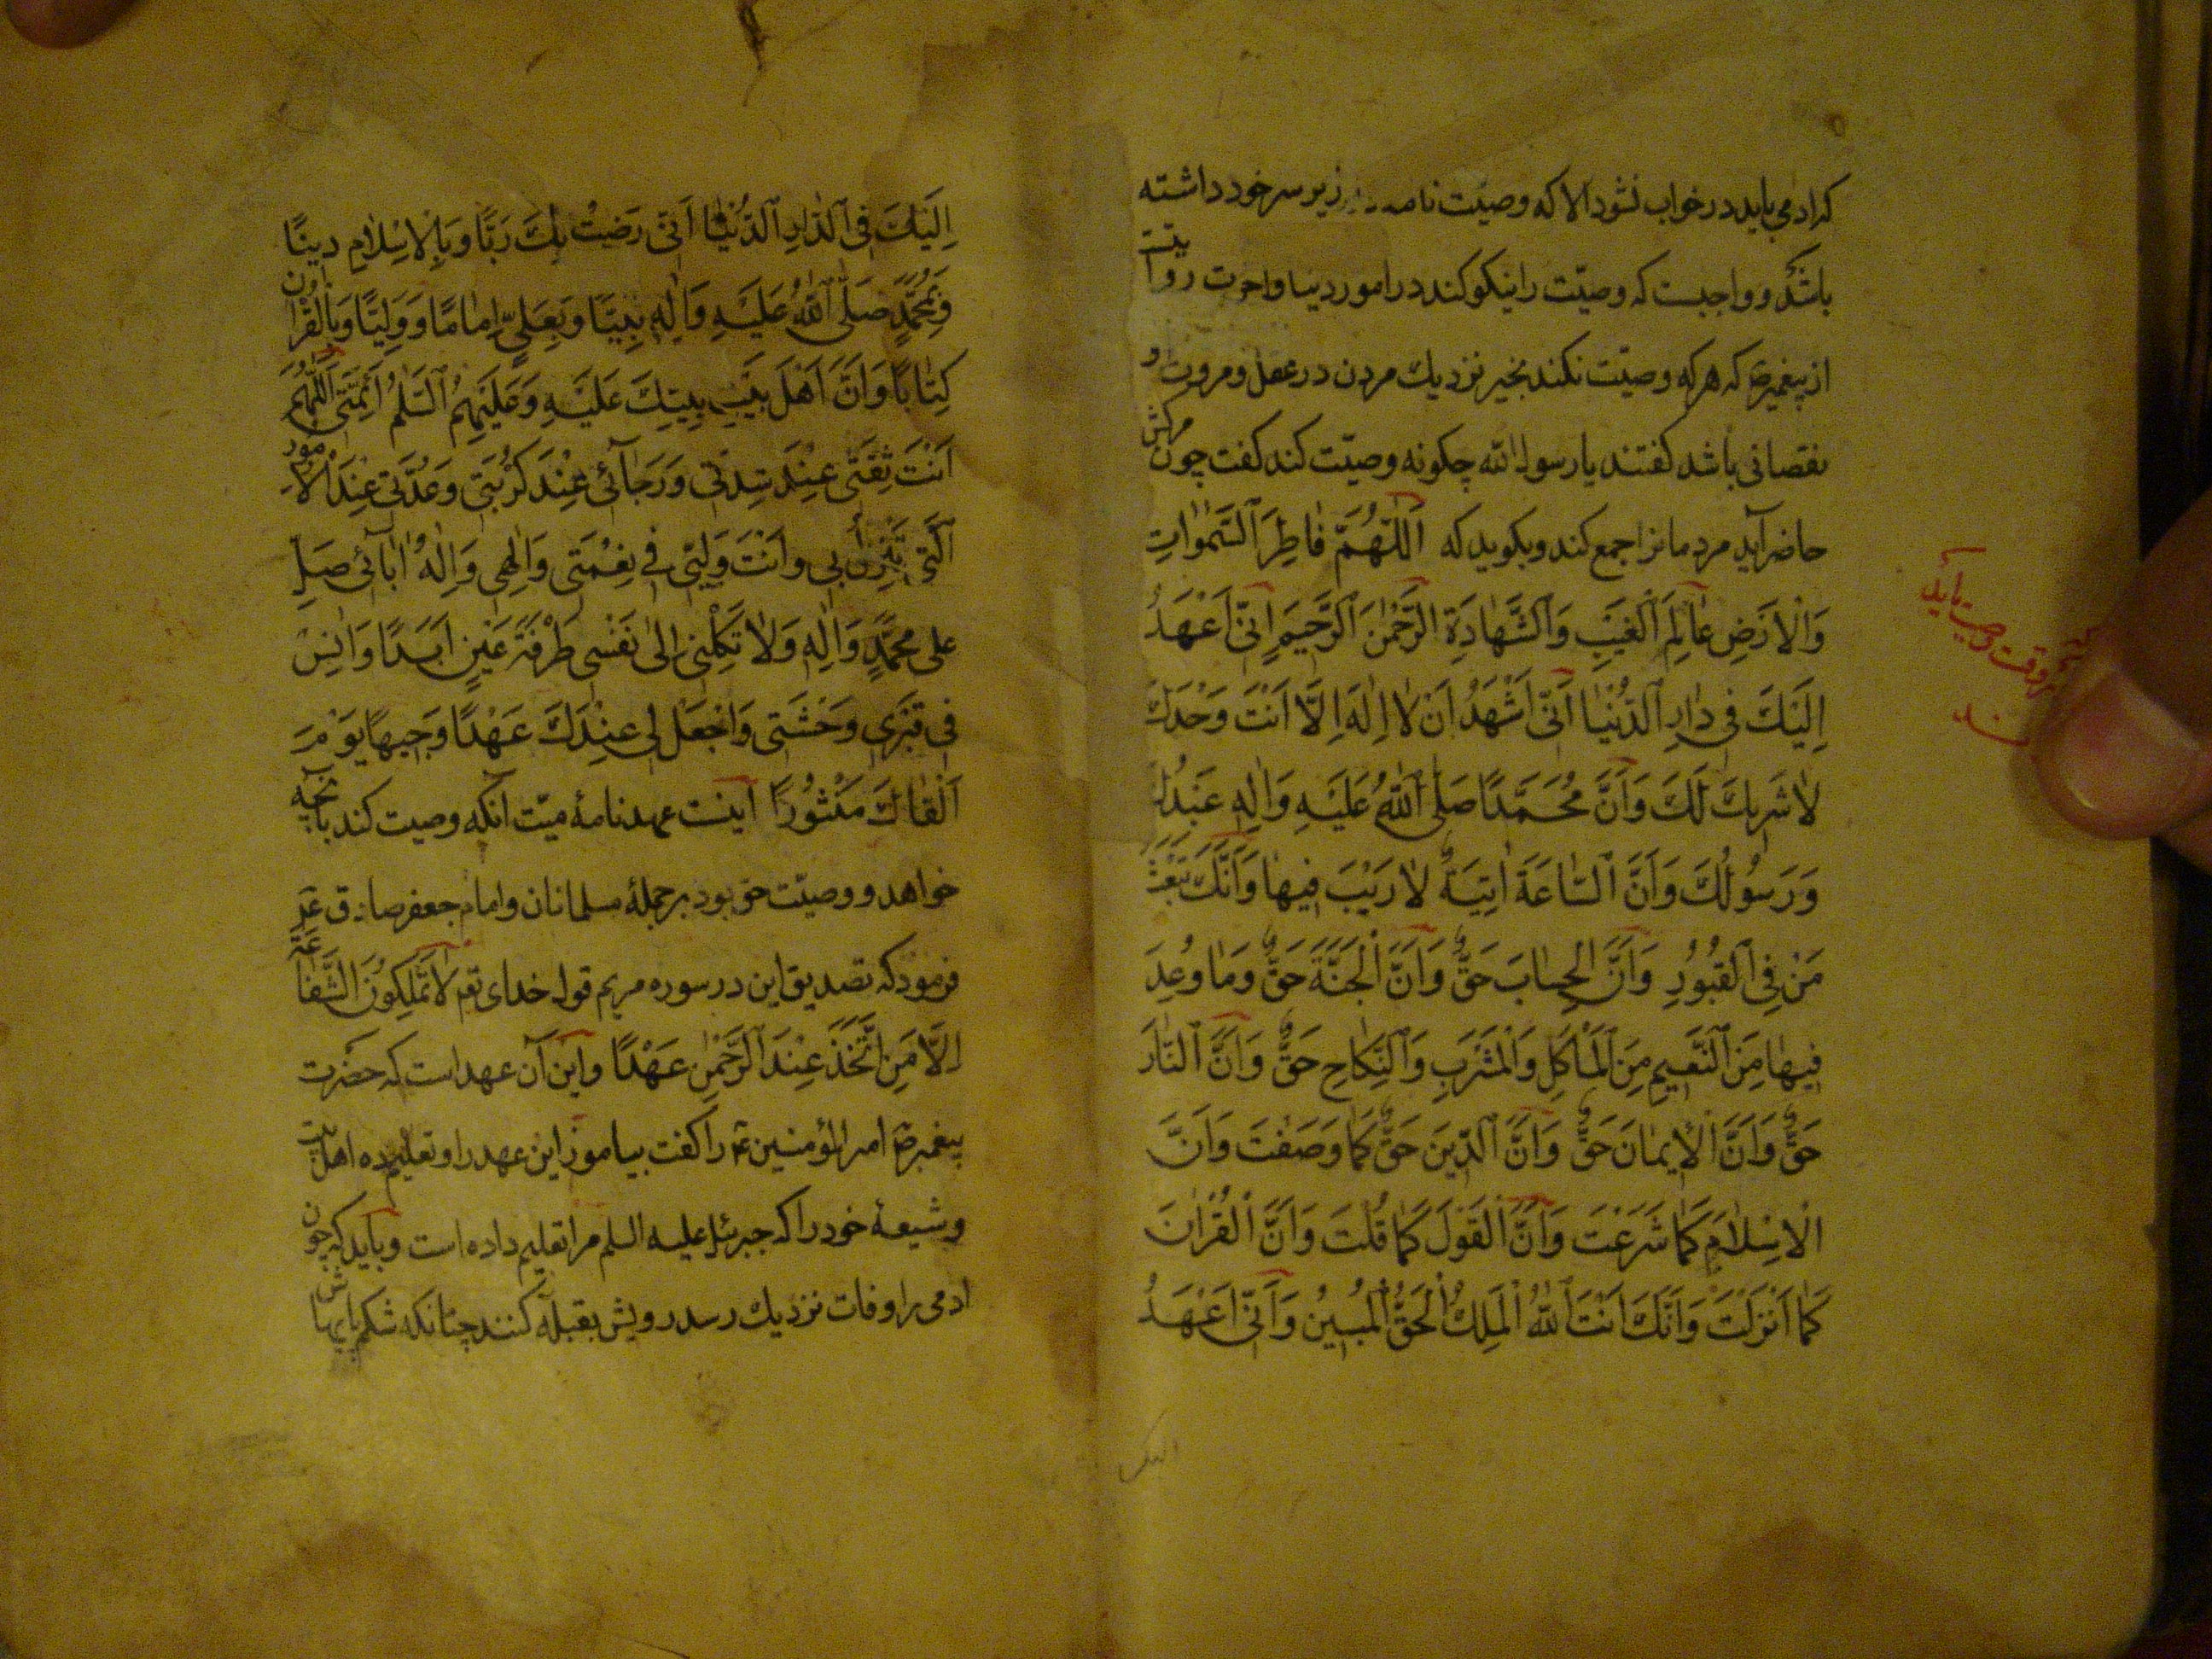 که ادمی باید در خواب نشود الا که وصیّت نامه زیر سر خود داشته
باشد و واجبست که وصیّت را نیکو کند در امور دنیا و اخرت روایتست
از پیغمبر ص که هر که وصیّت نکند بخیر نزدیك مردن در عقل و مروت او
نقصانی باشد کفتند یا رسول الله چکونه وصیّت کند کفت چون مرکش
حاضر آید مردمانرا جمع کند و بکوید که اَللّٰهُمَّ فٰاطِرَ السَّمٰوٰاتِ
وَالْاَرْضِ عٰالِمَ الْغَیْبِ وَالشَّهٰادَةِ الرَّحْمٰنَ الرَّحیٖمَ اِنّیٖ اَعْهَدُ
اِلَیْكَ فیٖ دٰارِ الدُّنْیٰا اَنّیٖ اَشْهَدُ اَنْ لٰا اِلٰهَ اِلَّا اَنْتَ وَحْدَكَ
لٰا شَریٖكَ لَكَ وَاَنَّ مُحَمَّدًا صَلَّی اللّٰهُ عَلَیْهِ وَاٰلِهِ عَبْدُكَ
وَرَسُولُكَ وَاَنَّ السّٰاعَةَ اٰتِیَةٌ لٰا رَیْبَ فیٖهٰا وَاَنَّكَ تَبْعَثُ
مَنْ فِی الْقُبُورِ وَاَنَّ الْحِسٰابَ حَقٌّ وَاَنَّ الْجَنَّةَ حَقٌّ وَمٰا وُعِدَ
فیٖهٰا مِنَ النَّعیٖمِ مِنَ الْمَأْكَلِ وَالْمَشْرَبِ وَالنِّكٰاحِ حَقٌّ وَاَنَّ النّٰارَ
حَقٌّ وَاَنَّ الْاٖیمٰانَ حَقٌّ وَاَنَّ الدّیٖنَ حَقٌّ كَمٰا وَصَفْتَ وَاَنَّ
الْاِسْلٰامَ كَمٰا شَرَعْتَ وَاَنَّ الْقَوْلَ كَمٰا قُلْتَ وَاَنَّ الْقُرْاٰنَ
كَمٰا اَنْزَلْتَ وَاَنَّكَ اَنْتَ اللّٰهُ الْمَلِكُ الْحَقُّ الْمُبیٖنُ وَاَنّیٖ اَعْهَدُ
وقت وصیت باید
اِلَیْكَ فِی الدّٰارِ الدُّنْیٰا اَنّیٖ رَضیٖتُ بِكَ رَبًّا وَبِالْاِسْلٰامِ دیٖنًا
وَبِمُحَمَّدٍ صَلَّی اللّٰهُ عَلَیْهِ وَاٰلِهِ نَبِیًّا وَبِعَلِیٍّ اِمٰامًا وَوَلِیًّا وَبِالْقُرْاٰنِ
كِتٰابًا وَاَنَّ اَهْلَ بَیْتِ نَبِیِّكَ عَلَیْهِ وَعَلَیْهِمُ السَّلٰمُ اَئِمَّتیٖ اَللّٰهُمَّ
اَنْتَ ثِقَتیٖ عِنْدَ شِدَّتیٖ وَرَجٰائیٖ عِنْدَ كُرْبَتیٖ وَعُدَّتیٖ عِنْدَ الْاُمُورِ
الَّتیٖ تَنْزِلُ بیٖ وَاَنْتَ وَلِیّیٖ فیٖ نِعْمَتیٖ وَاِلٰهیٖ وَاِلٰهُ اٰبٰائیٖ صَلِّ
عَلیٰ مُحَمَّدٍ وَاٰلِهِ وَلٰا تَكِلْنیٖ اِلیٰ نَفْسیٖ طَرْفَةَ عَیْنٍ اَبَدًا وَاٰنِسْ
فیٖ قَبْریٖ وَحْشَتیٖ وَاجْعَلْ لیٖ عِنْدَكَ عَهْدًا وَجیٖهًا یَوْمَ
اَلْقٰاكَ مَنْثُورًا اینست عهدنامهٔ میّت انکه وصیت کند بآنچه
خواهد و وصیّت حق بود بر جملهٔ مسلمانان و امام جعفر صادق ع
فرمود که تصدیق این در سوره مریم قول خدای تع لٰا تَمْلِكُونَ الشَّفٰاعَةَ
اِلَّا مَنِ اتَّخَذَ عِنْدَ الرَّحْمٰنِ عَهْدًا و این آن عهد است که حضرت
پیغمبر ص امیر المؤمنین ع را کفت بیاموز این عهد را و تعلیم ده اهل بیت
و شیعهٔ خود را که جبرئیل علیه السلم مرا تعلیم داده است و باید که چون
ادمی را وفات نزدیك رسد رویش بقبله کنند چنانکه شکم پایهاش